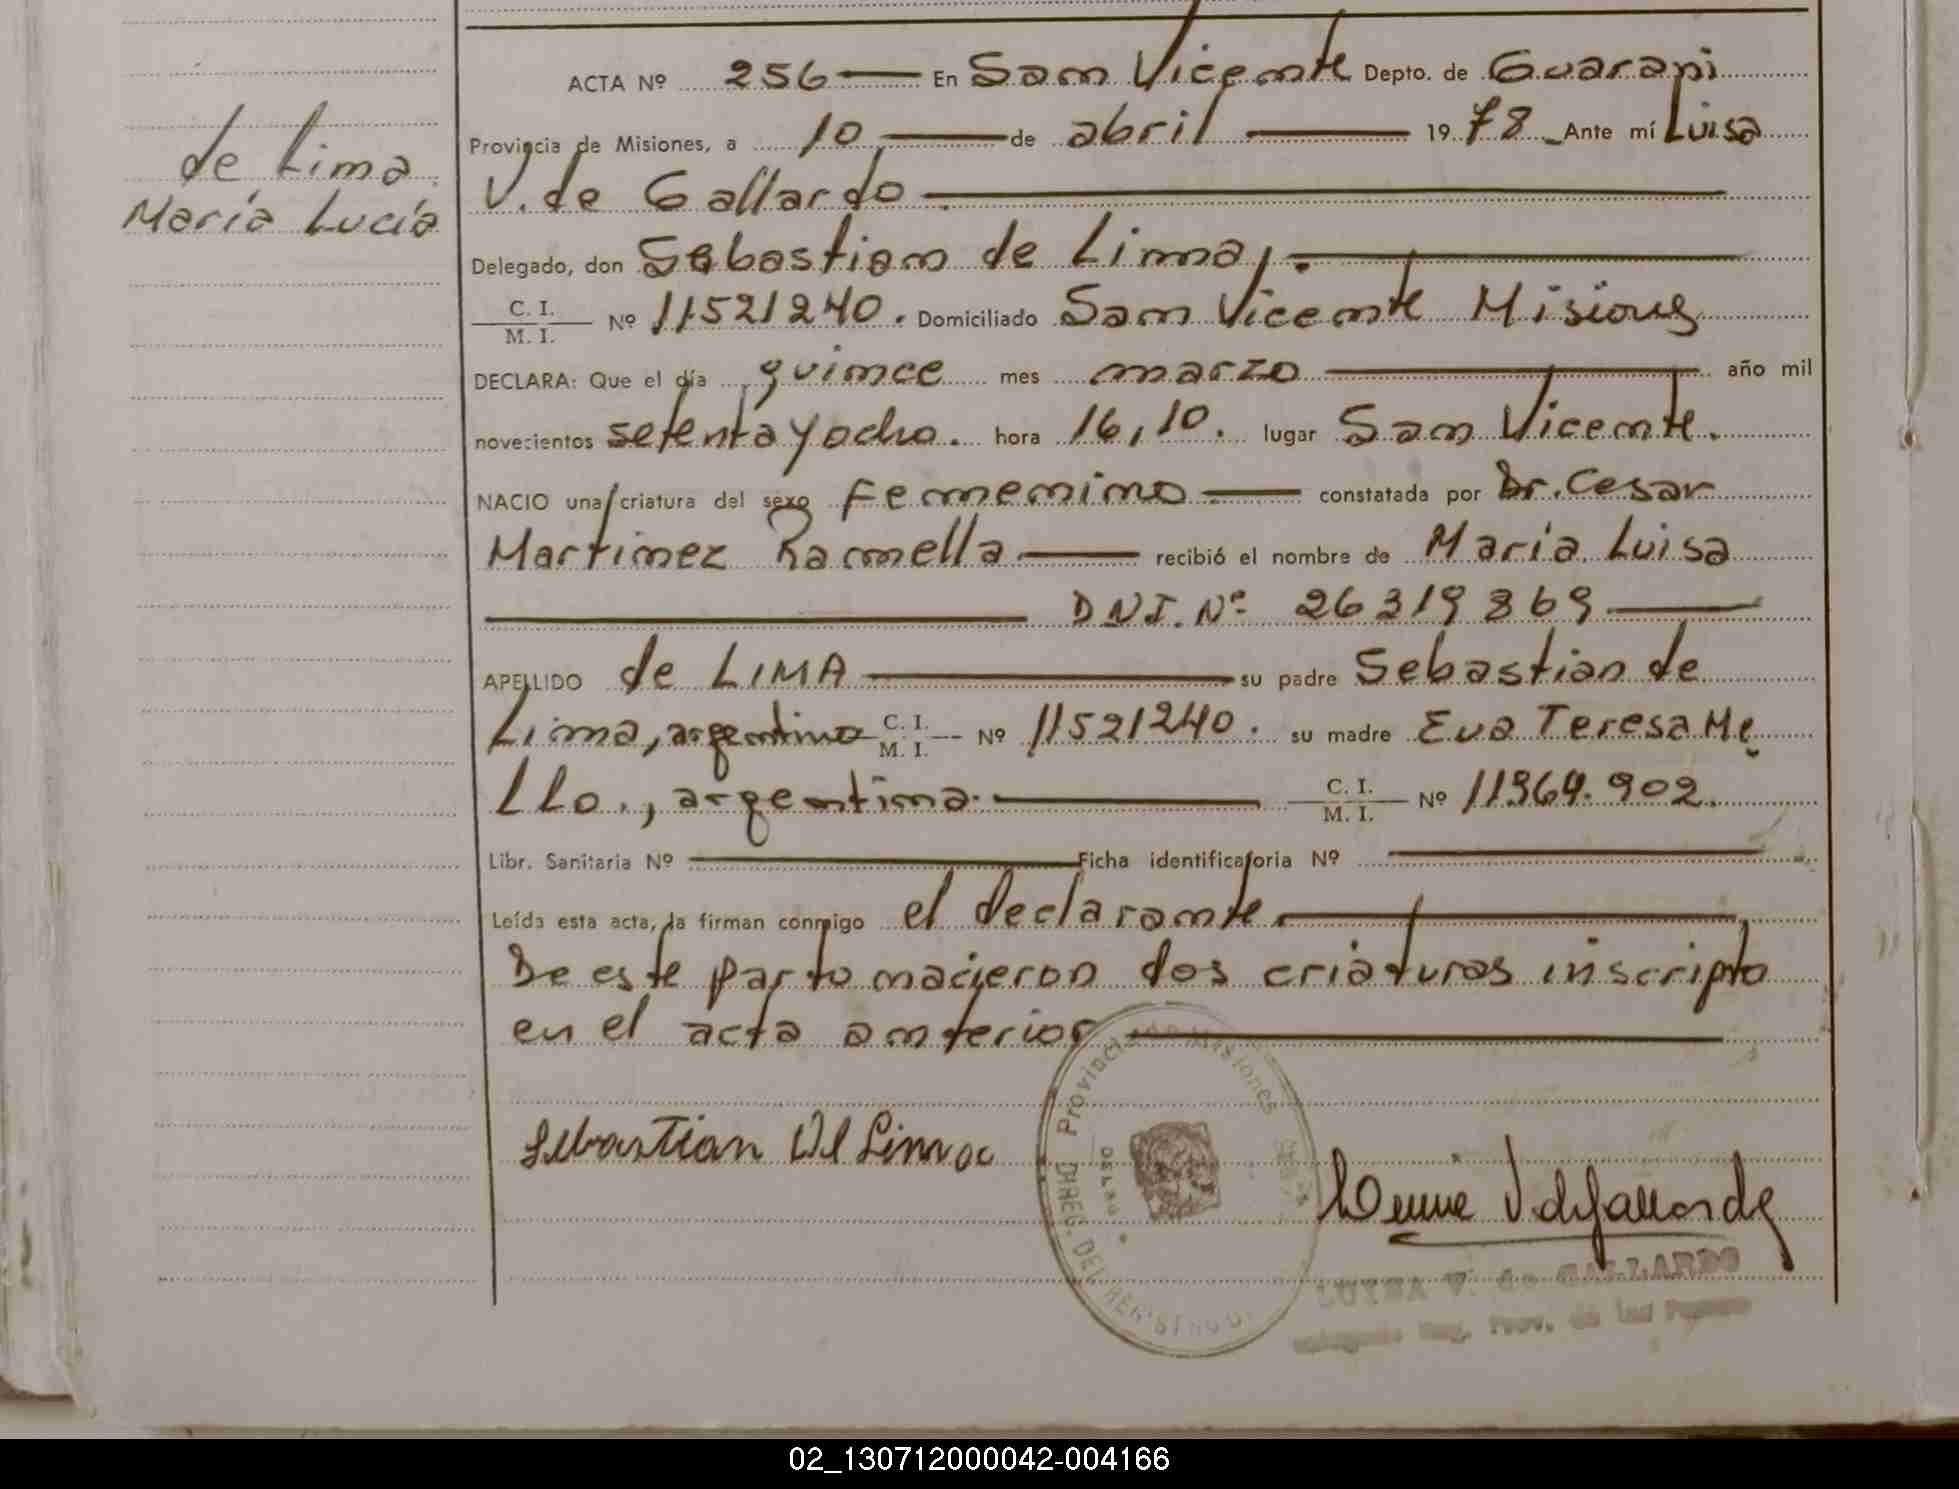 ACTA Nº 256 En San Vicente Depto. de Guarani
de Lima
María Lucía
Provincia de Misiones, a 10 de abril 1978 Ante mí Luisa
V. de Gallardo
Delegado, don Sebastian de Lima,
C. I.
M. I. Nº 11521240. Domiciliado San Vicente Misiones
DECLARA: Que el día quince mes marzo año mil
novecientos setenta y ocho. hora 16,10. lugar San Vicente.
NACIO una criatura del sexo femenino constatada por Dr. Cesar
Martinez Ramella recibió el nombre de María Luisa
DNI. Nº 26319869
APELLIDO de LIMA su padre Sebastian de
Lima, argentino C. I.
M. I. Nº 11521240. su madre Eva Teresa Me
LLo., argentina. C. I.
M. I. Nº 11364.902.
Libr. Sanitaria Nº Ficha identificatoria Nº
Leída esta acta, la firman conmigo el declarante
De este parto nacieron dos criaturas inscripto
en el acta anterior
Provincia de Misiones
DIREC. DEL REGISTRO D
Sebastian De Lima
LUISA V. de GALLARDO
02_130712000042-004166